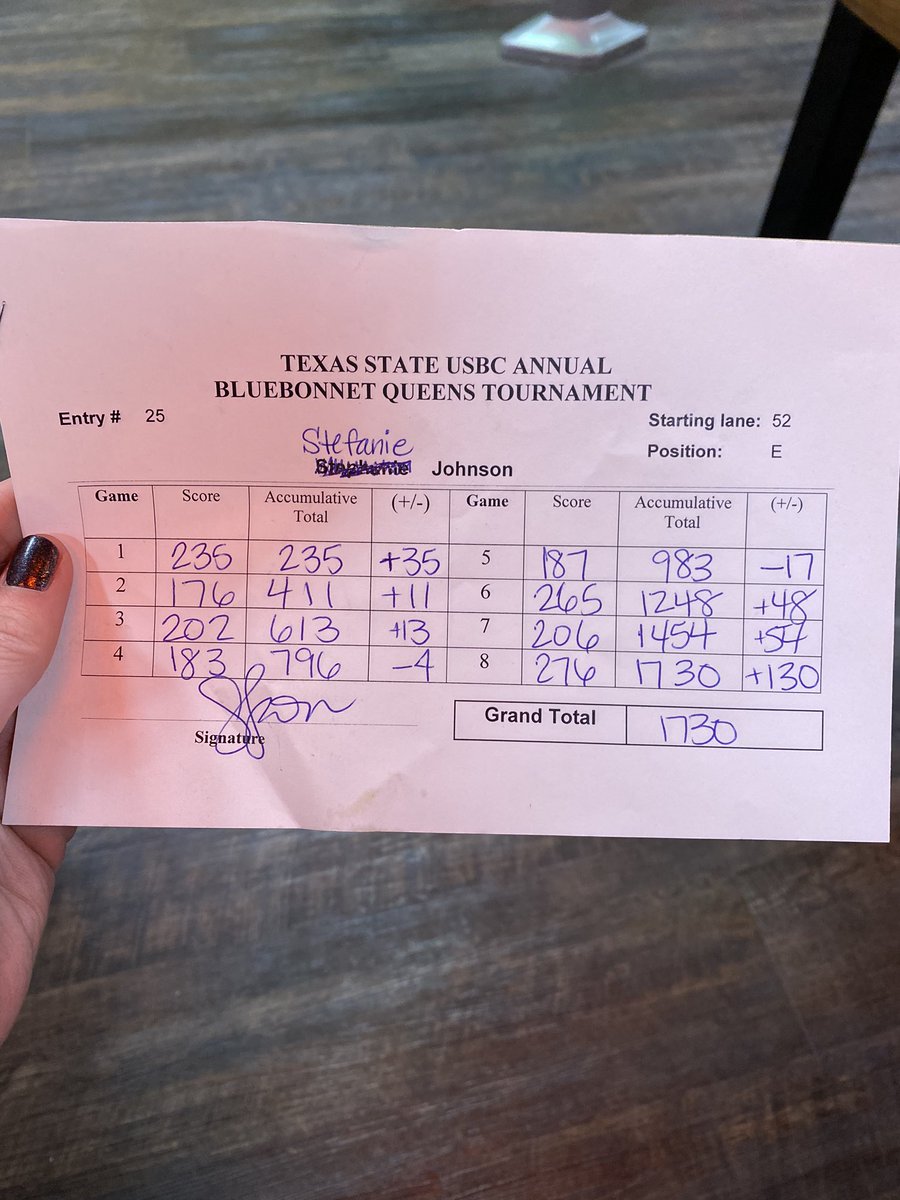 TEXAS STATE USBC ANNUAL
BLUEBONNET QUEENS TOURNAMENT
Entry # 25 Starting lane: 52
Stefanie Position: E
Johnson
Game Score Accumulative Total (+/-) Game Score Accumulative Total (+/-)
1 235 235 +35 5 187 983 -17
2 176 411 +11 6 265 1248 +48
3 202 613 +13 7 206 1454 +54
4 183 796 -4 8 276 1730 +130
Signature
Grand Total 1730